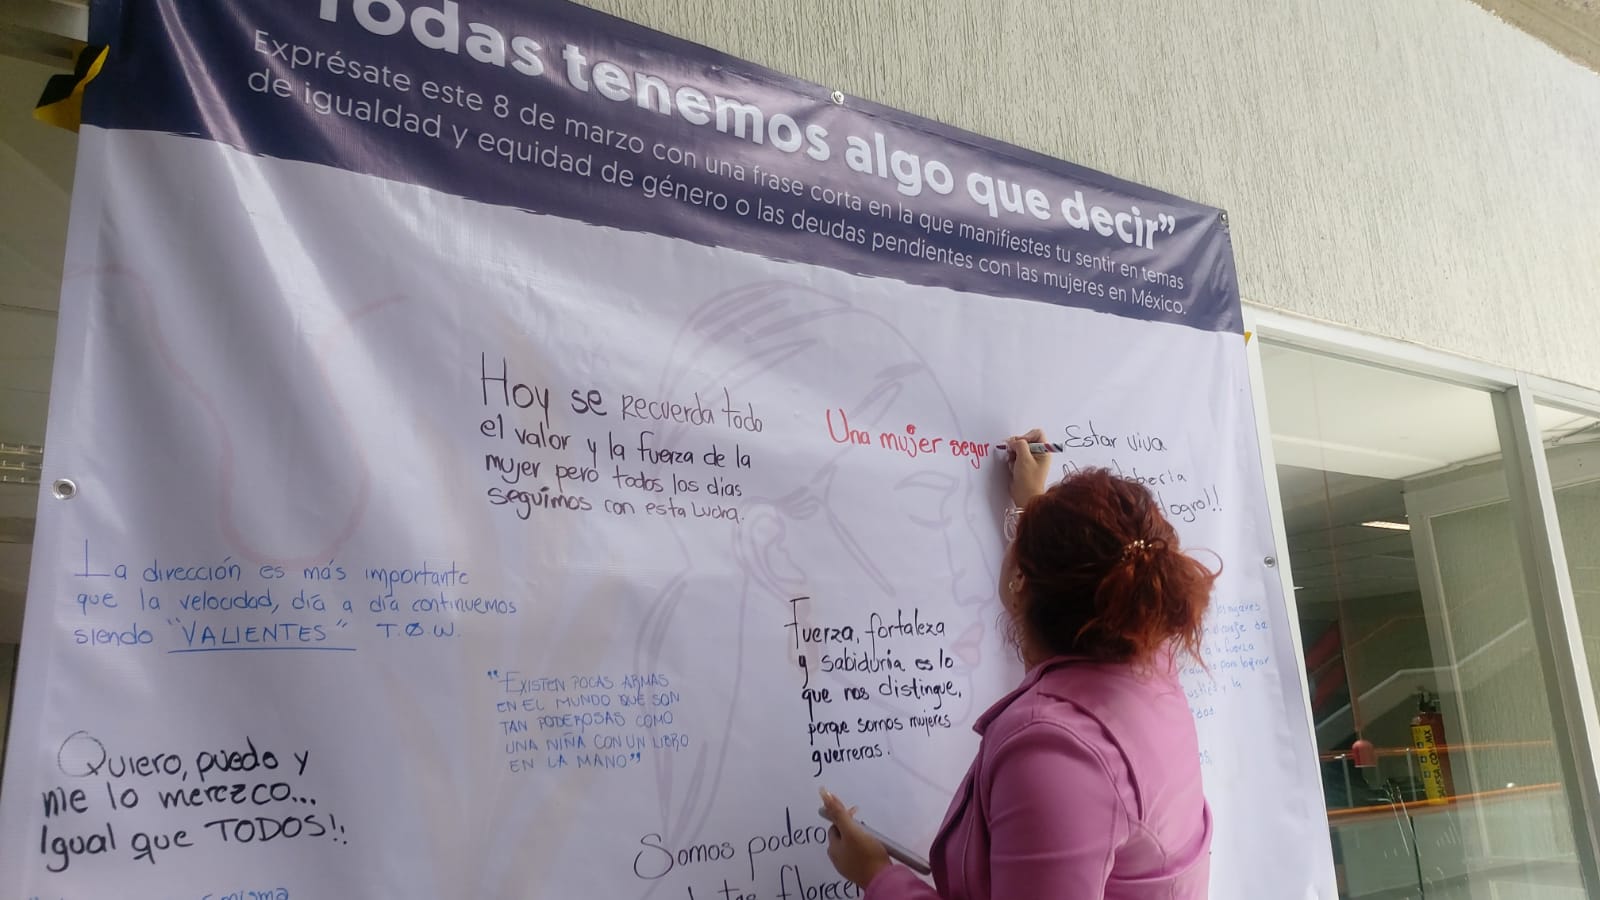 Todas tenemos algo que decir”
Exprésate este 8 de marzo con una frase corta en la que manifiestes tu sentir en temas
de igualdad y equidad de género o las deudas pendientes con las mujeres en México.
Hoy se recuerda todo
el valor y la fuerza de la
mujer pero todos los días
seguimos con esta Lucha.
Una mujer segur
Estar viva
logro!!
La dirección es más importante
que la velocidad, día a día continuemos
siendo "VALIENTES" T.Q.W.
"EXISTEN POCAS ARMAS
EN EL MUNDO QUE SON
TAN PODEROSAS COMO
UNA NIÑA CON UN LIBRO
EN LA MANO"
Fuerza, fortaleza
y sabiduría es lo
que nos distingue,
porque somos mujeres
guerreras.
Quiero, puedo y
me lo merezco...
Igual que TODOS!!
Somos podero
florecer
a la fuerza
para lograr
y la